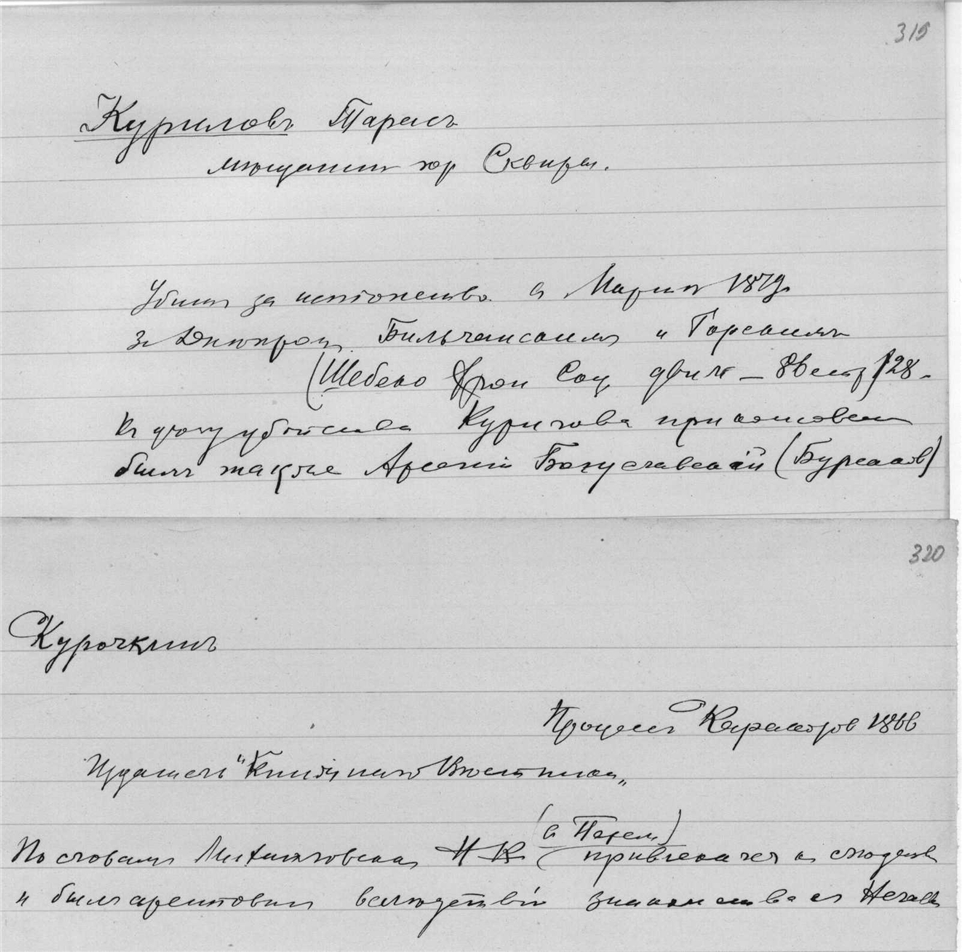 319
Куриловъ Тарасъ
мѣщанинъ гор Сквиры.
Убитъ за шпіонство въ Мартѣ 1879
за Днѣпромъ Бильчанскимъ и Горскимъ
(Шебеко Хрон Соц движ – 8 Вестр 128 –
Къ дѣлу убійства Курилова прикосновенъ
былъ также Арсеній Богуславскій (Бурсаков)
320
Курочкинъ
Процессъ Каракозов 1866
Издатель "Книжнаго Вѣстника„
(въ Петерб)
По словамъ Михайловскаго Н К привлекался къ слѣдств
и былъ арестованъ вслѣдствіи знакомства съ